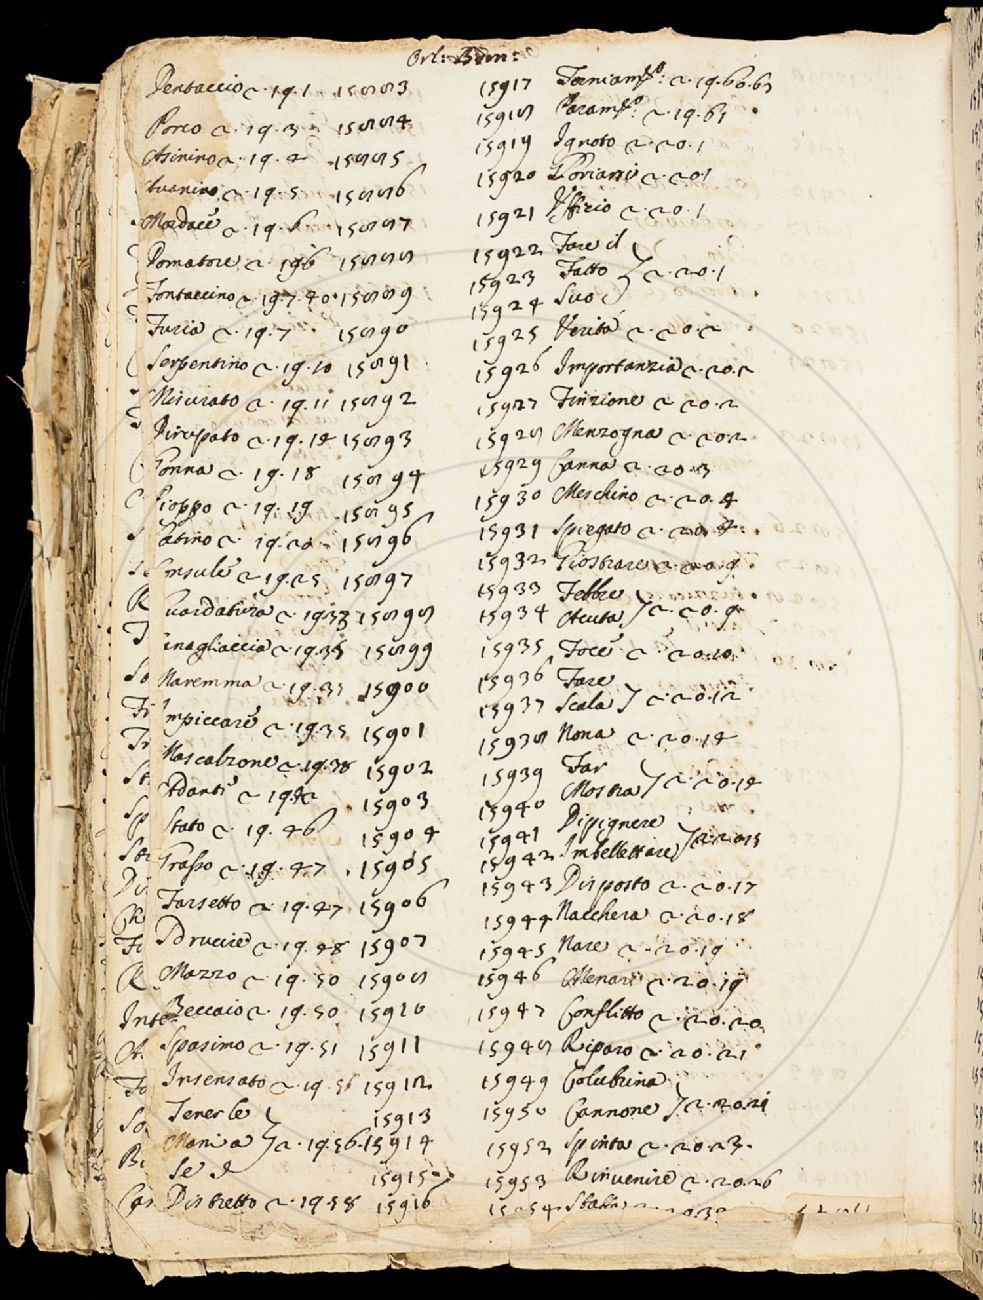 Orl: Bern:
Pentaccio 2. 19. 1 15883
Porco 2. 19. 3 15884
Asinino 2. 19. 4 15885
2. 19. 5 15886
Mordace 2. 19. 6 15887
Domatore 2. 196 15888
Fontaccino 2. 19. 7. 40. 15889
Furia 2. 19. 7 15890
Serpentino 2. 19. 10 15891
Misurato 2. 19. 11 15892
Dirupato 2. 19. 14 15893
Gonna 2. 19. 18 15894
Pioppo 2. 19. 19 15895
Latino 2. 19. 20 15896
Consule 2. 19. 25 15897
Guardatura 2. 19. 33 15898
2. 19. 35 15899
Maremma 2. 19. 35 15900
Impiccare 2. 19. 35 15901
Mascalzone 2. 19. 38 15902
Adanti 2. 19. 42 15903
Stato 2. 19. 46 15904
Grasso 2. 19. 47 15905
Farsetto 2. 19. 47 15906
Sdrucire 2. 19. 48 15907
Mazzo 2. 19. 50 15908
Beccaio 2. 19. 50 15910
Spasimo 2. 19. 51 15911
Insensato 2. 19. 56 15912
Tener le 15913
Mani a } 2. 19. 56. 15914
Se 15915
Distretto 2. 19 58 15916
15917 2. 19. 60. 63
15918 2. 19. 63
15919 Ignoto 2. 20. 1
15920 2. 20 1
15921 Ufficio 2. 20. 1
15922 Fare il
15923 Fatto } 2. 20. 1
15924 Suo
15925 Verità 2. 20. 2
15926 Importanzia 2. 20. 2
15927 Finzione 2. 20. 2
15928 Menzogna 2. 20 2
15929 Canna 2. 20. 3
15930 Meschino 2. 20. 4
15931 Spiegato 2. 20. 4
15932 Giostrare 2. 20. 9
15933 Febbre
15934 Acuta } 2. 20. 9
15935 Foce 2. 20. 10
15936 Fare
15937 Scala } 2. 20. 12
15938 Nona 2. 20. 14
15939 Far
15940 Mostra } 2. 20. 14
15941 Dipignere
15942 Imbellettare } 2. 20 15
15943 Disposto 2. 20. 17
15944 Nacchera 2. 20. 18
15945 Nare 2. 20. 19
15946 Menare 2. 20. 19
15947 Conflitto 2. 20. 20
15948 Riparo 2. 20. 21
15949 Colubrina
15950 Cannone } 2. 20. 21
15952 Spinta 2. 20. 23.
15953 Rinvenire 2. 20. 26
15954